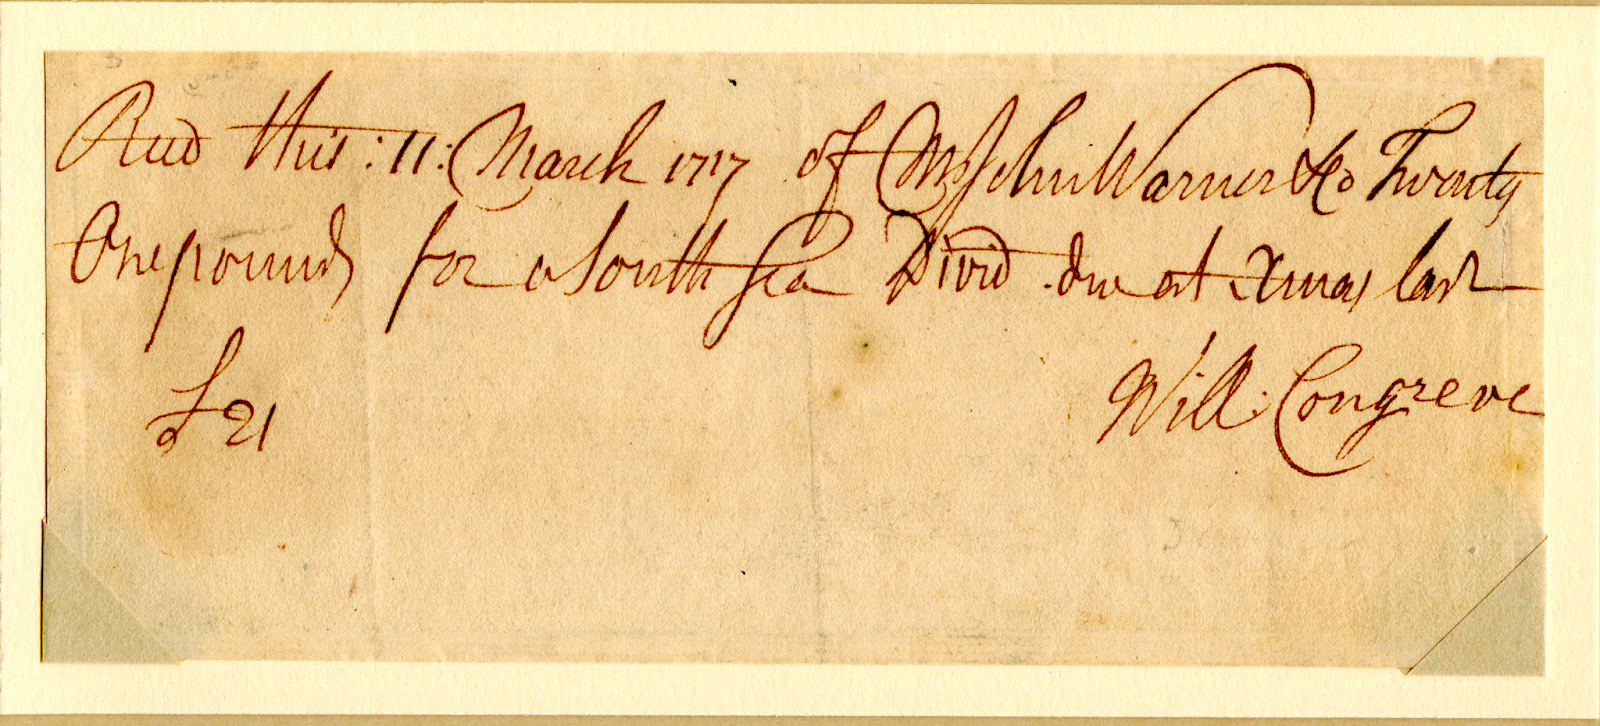 Recd this :11: March 1717 of Mr John Warner &Co Twenty
One pounds for a South Sea Divid due at Xmas last
£21 Will: Congreve